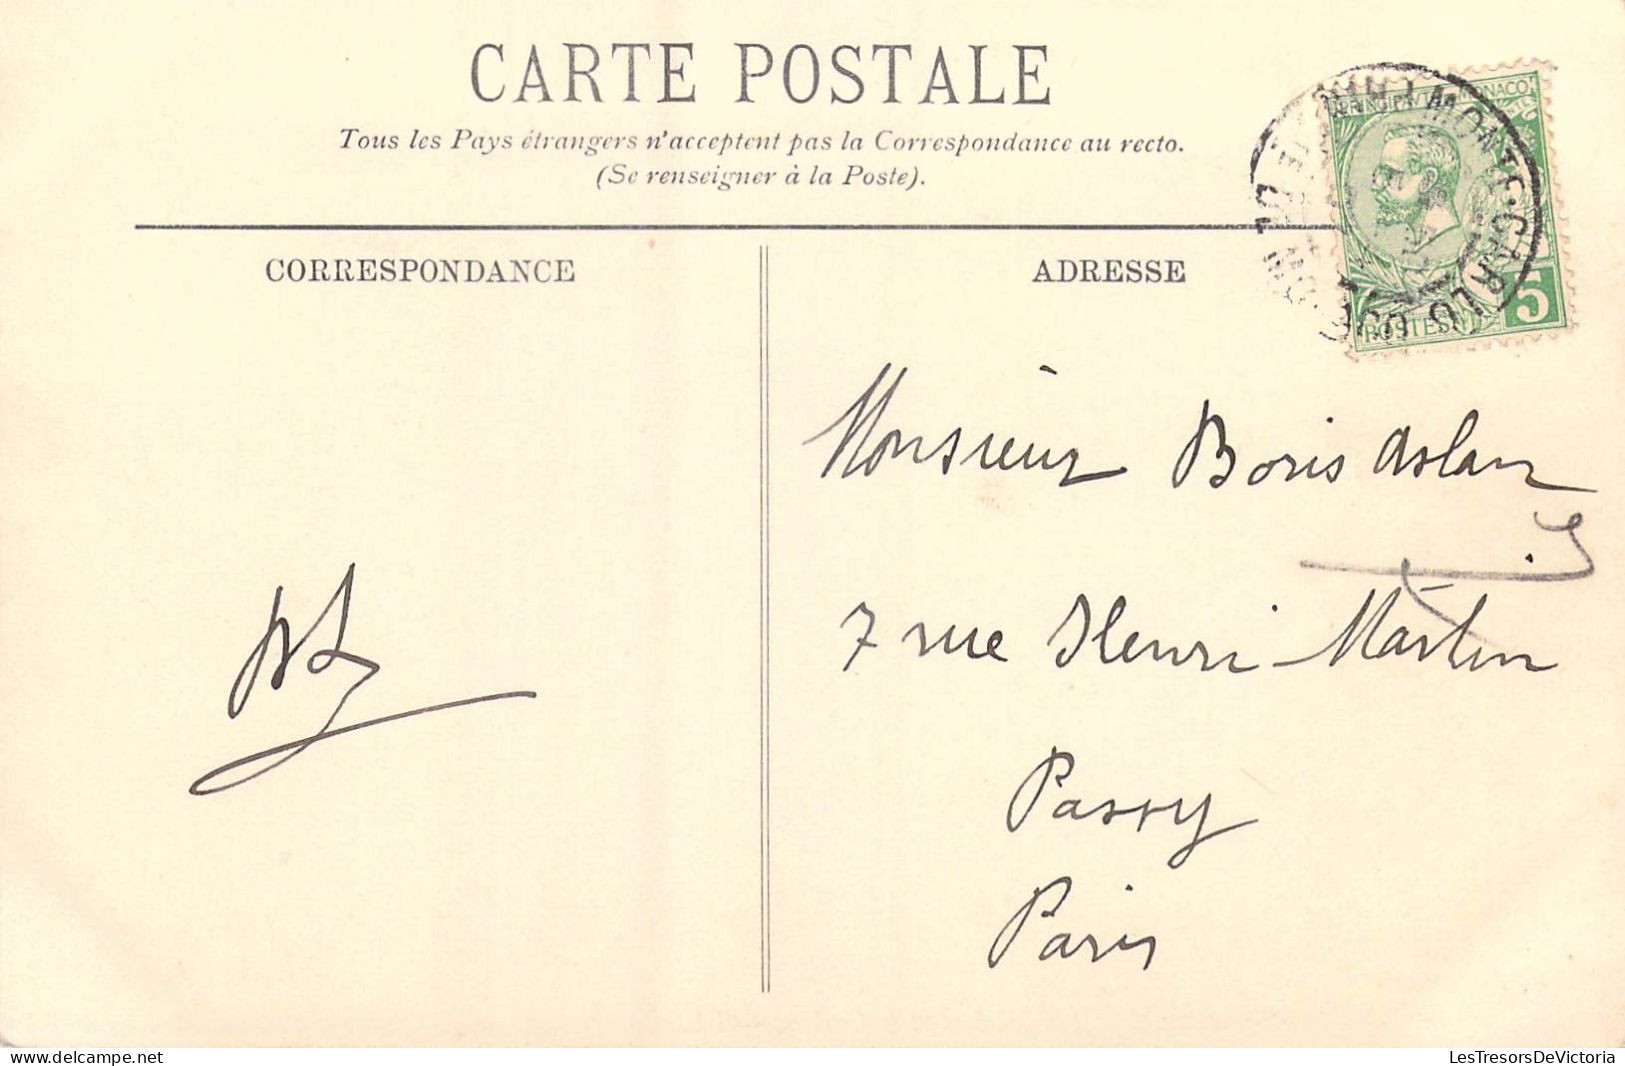 CARTE POSTALE
Tous les Pays étrangers n'acceptent pas la Correspondance au recto.
(Se renseigner à la Poste).
CORRESPONDANCE
ADRESSE
MONTE-CARLO
MONACO
POSTES
5
Monsieur Boris Aslan
7 rue Henri-Martin
Passy
Paris
www.delcampe.net
LesTresorsDeVictoria